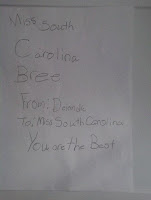 Miss South
Carolina
Bree
From: Dannah
To, Miss South Carolina
You are the Best